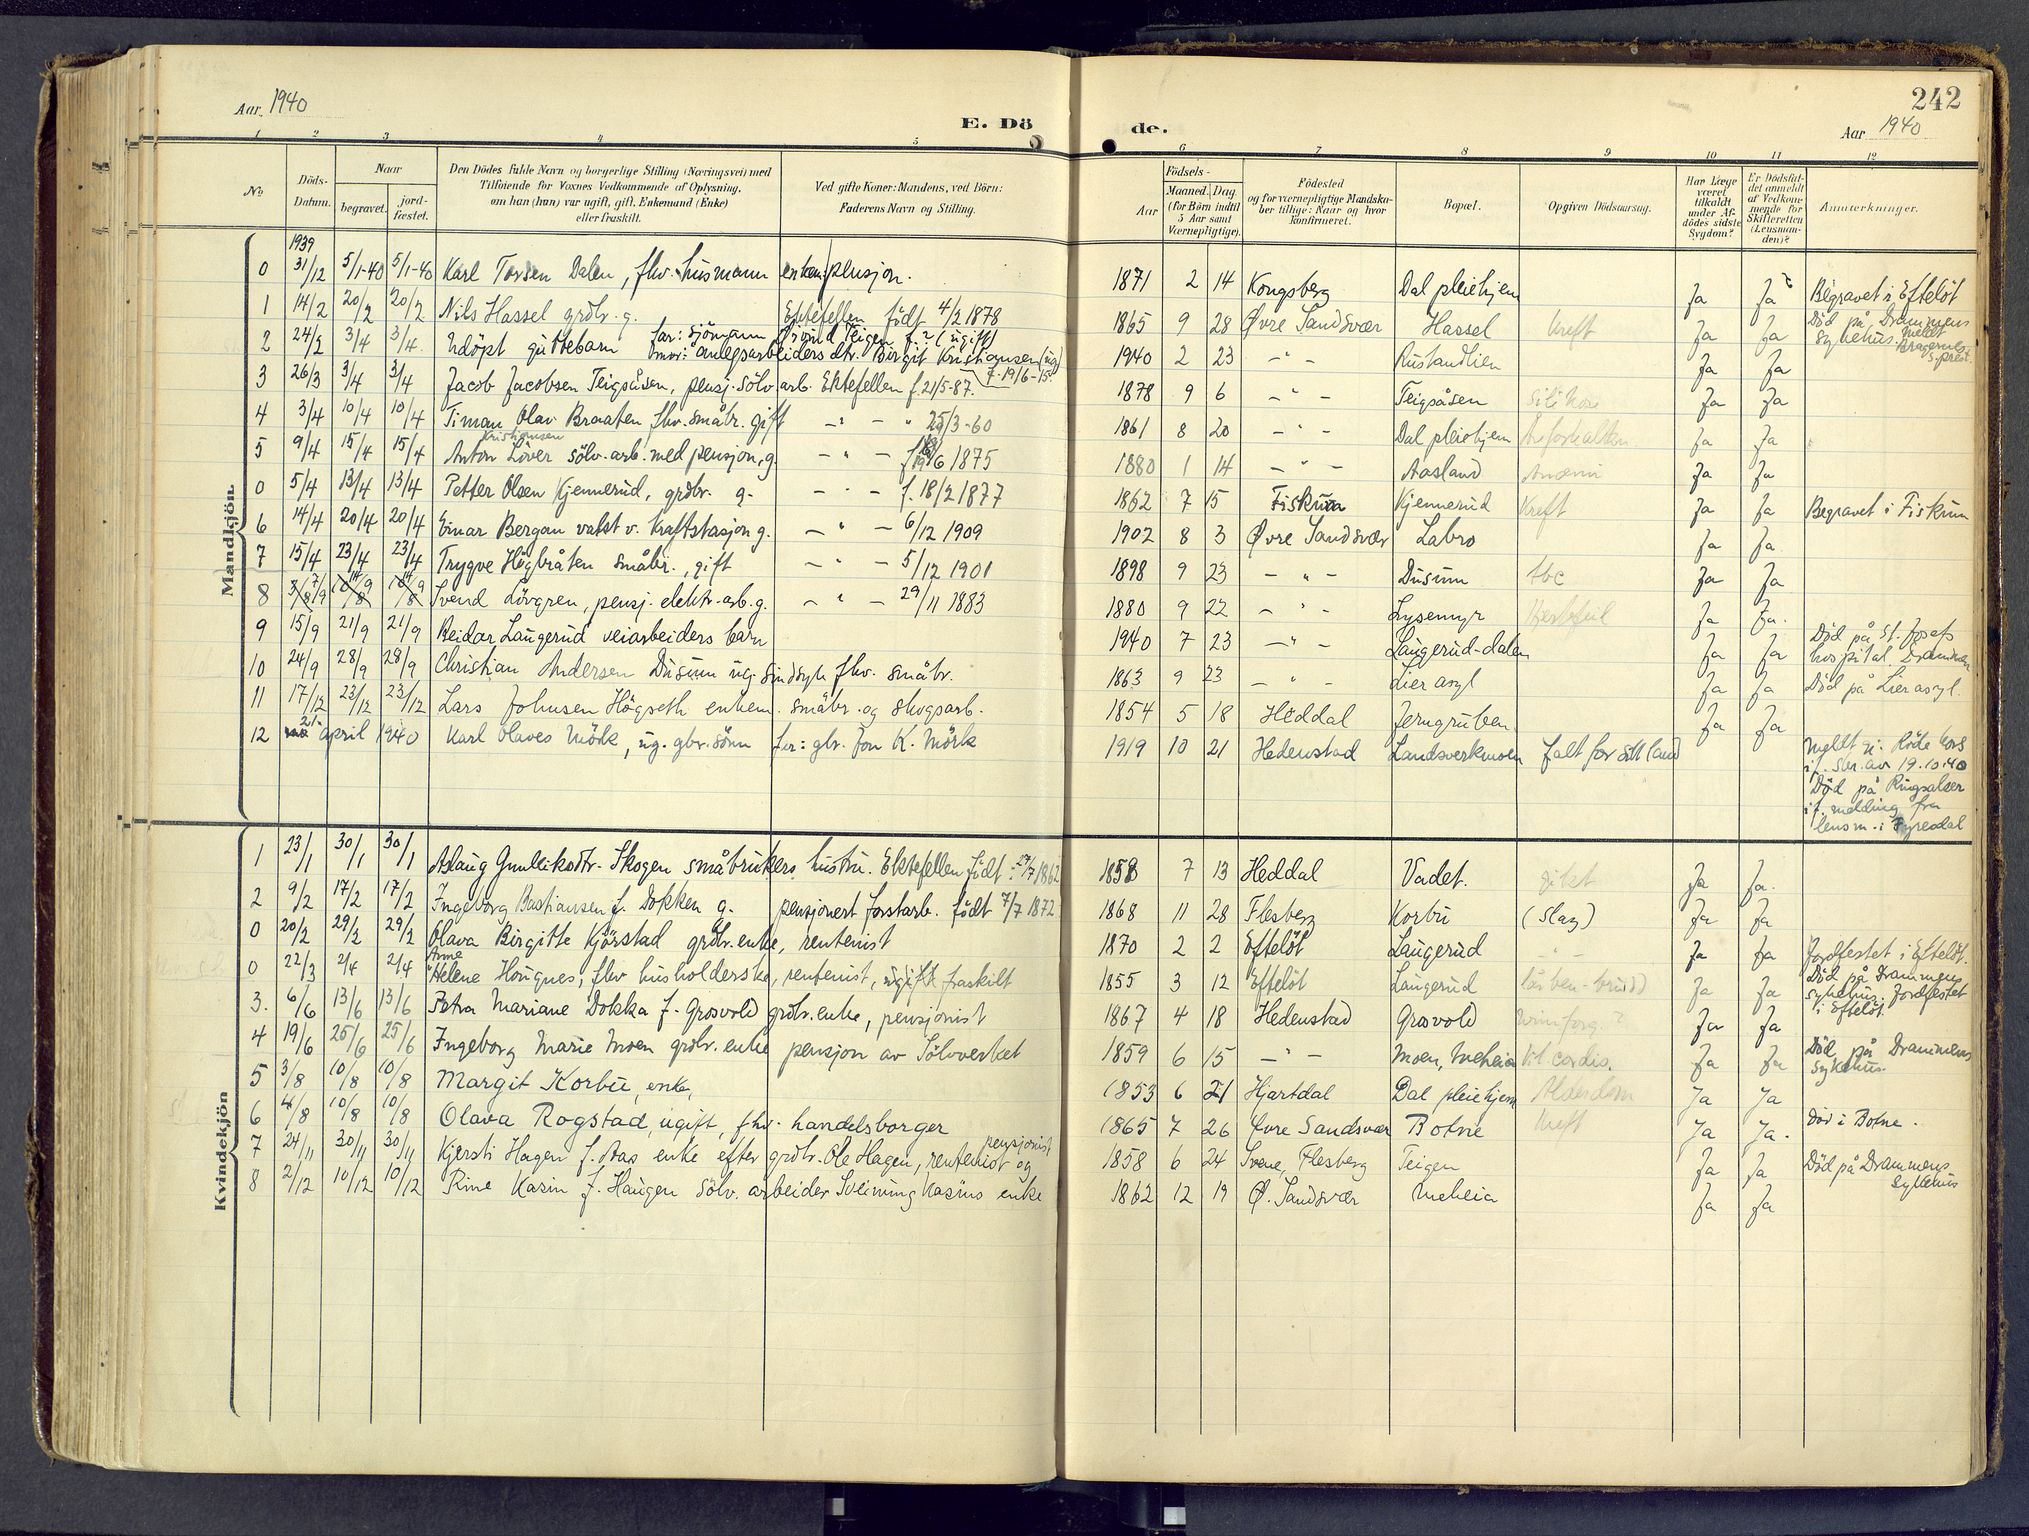 Aar 1940
E. Dö de.
242
Aar 1940
1 2 3 4 5 6 7 8 9 10 11 12
No.
Döds-Datum.
Naar
begravet.
jord-fæstet.
Den Dödes fulde Navn og borgerlige Stilling (Næringsvei) med
Tilföiende för Voxnes Vedkommende af Oplysning,
om han (hun) var ugift, gift, Enkemand (Enke)
eller fraskilt.
Ved gifte Koner: Mandens, ved Börn:
Faderens Navn og Stilling.
Födsels-
Aar
Maaned. Dag.
(for Börn indtil
5 Aar samt
Værnepligtige).
Födested
og for værnepligtige Mandska-
ber tillige: Naar og hvor
konfirmeret.
Bopæl.
Opgiven Dödsaarsag.
Har Læge
været
tilkaldt
under Af-
dödes sidste
Sygdom?
Er Dödsfal-
det anmeldt
af Vedkom-
mende for
Skifteretten
(Lensman-
den)?
Anmærkninger.
Mandkjön.
1939
0 31/12 5/1-40 5/1-40 Karl Torsen Dalen, fhv. husmann enkem. pensjon. 1871 2 14 Kongsberg Dal pleiehjem Ja Ja Begravet i Efteløt
1 14/2 20/2 20/2 Nils Hassel grdbr. g. Ektefellen født 4/2 1878 1865 9 28 Øvre Sandsvær Hassel Kreft Ja Ja Død på Drammens sykehus. Meldt Bragernes s.prest.
2 24/2 3/4 3/4 Udöpt guttebarn far: sjömann Teigen f. ? (ugift)
mor: anlegsarbeiders dtr. Birgit Kristiansen (ug) f. 19/6-15. 1940 2 23 - " - Rustandlien Ja Ja
3 26/3 3/4 3/4 Jacob Jacobsen Teigsåsen, pensj. sölv.arb. Ektefellen f. 21/5-87. 1878 9 6 - " - Teigsåsen Ja Ja
4 3/4 10/4 10/4 Timan Olav Braaten fhv. småbr. gift - " - " 25/3-60 1861 8 20 - " - Dal pleiehjem Ja Ja
5 9/4 15/4 15/4 Anton Kristiansen Löver sölv.arb. med pensjon, g. - " - 1875 1880 1 14 - " - Aasland Anæmi Ja Ja
0 5/4 13/4 13/4 Petter Olsen Kjennerud, grdbr. g. - " - f. 18/2 1877 1862 7 15 Fiskum Kjennerud Kreft Ja Ja Begravet i Fiskum
6 14/4 20/4 20/4 Einar Bergan vakt v. kraftstasjon g. - " - 6/12 1909 1902 8 3 Øvre Sandsvær Labro Ja Ja
7 15/4 23/4 23/4 Trygve Högbråten småbr., gift - " - 5/12 1901 1898 9 23 - " - Dusum tbc Ja Ja
8 7/9 14/9 14/9 Svend Lövgren, pensj. elektr.arb. g. - " - 29/11 1883 1880 9 22 - " - Lysemyr Hjertefeil Ja Ja.
9 15/9 21/9 21/9 Reidar Laugerud veiarbeiders barn 1940 7 23 - " - Laugerud-dalen Ja Ja Død på St. Josefs hospital Drammen
10 24/9 28/9 28/9 Christian Andersen Dusum ug. sindsyk fhv. småbr. 1863 9 23 - " - Lier asyl Ja Ja Död på Lier asyl.
11 17/12 23/12 23/12 Lars Johnsen Högseth enkem. småbr. og skogsarb. 1854 5 18 Heddal Jerngruben. Ja Ja
12 21. april 1940 Karl Olaves Mörk, ug. gbr. sönn far: gbr. Jon K. Mörk 1919 10 21 Hedenstad Landsverkmoen falt for sitt land Meldt gj. Röde Kors
i f. skr. av 19.10.40
Död på Ringsakser
i f. melding fra
lensm. i Fyresdal
Kvindekjön
1 23/1 30/1 30/1 Aslaug Gunlliksdtr. Skogen småbrukers hustru. Ektefellen födt: 1862 1858 7 13 Heddal Vadet. gikt Ja Ja.
2 9/2 17/2 17/2 Ingeborg Bastiansen f. Dokken g. pensjonert forstarb. födt 7/7 1872 1868 11 28 Flesberg Korbu (slag) Ja Ja
0 20/2 29/2 29/2 Olava Birgitte Kjörstad grdbr. enke, rentenist 1870 2 2 Efteløt Laugerud Ja Ja Jordfestet i Efteløt.
0 22/3 2/4 2/4 Anne Helene Hougnes, fhv husholderske, rentenist, ugift fraskilt 1855 3 12 Efteløt Laugerud lårben-brudd Ja Ja Död på Drammens sykehus. Jordfestet i Efteløt.
3. 6/6 13/6 13/6 Petra Mariane Dokka f. Grosvold grdbr. enke, pensjonist 1867 4 18 Hedenstad Grosvold Ja Ja
4 19/6 25/6 25/6 Ingeborg Marie Moen grdbr. enke pensjon av Sölvverket 1859 6 15 - " - Moen, Meheia Vit. cordis. Ja Ja Död på Drammens sykehus.
5 3/8 10/8 10/8 Margit Korbu, enke, 1853 6 21 Hjartdal Dal pleiehjem Alderdom Ja Ja
6 4/8 10/8 10/8 Olava Rogstad, ugift, fhv. handelsborger 1865 7 26 Øvre Sandsvær Botne Kreft Ja Ja. Död i Botne.
7 24/11 30/11 30/11 Kjersti Hagen f. Aas enke efter grdbr. Ole Hagen, rentenist og pensjonist 1858 6 24 Svene, Flesberg Teigen Ja Ja Död på Drammens sykehus
8 2/12 10/12 10/12 Rine Kasin f. Haugen sölv. arbeider Sveinung Kasins enke 1862 12 19 Ø. Sandsvær Meheia Ja Ja